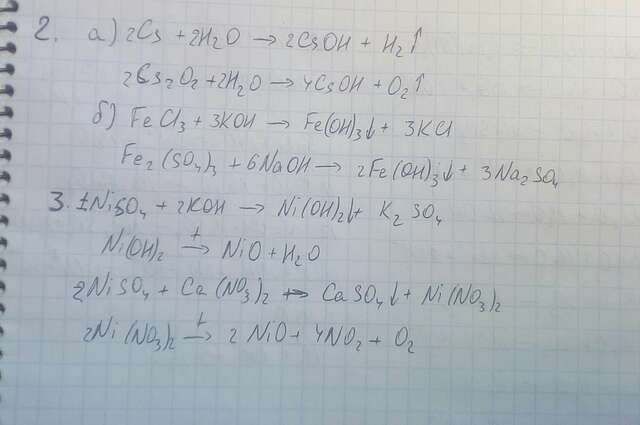 2. а) 2Cs + 2H₂O → 2CsOH + H₂↑
2Cs₂O₂ + 2H₂O → 4CsOH + O₂↑
б) FeCl₃ + 3KOH → Fe(OH)₃↓ + 3KCl
Fe₂(SO₄)₃ + 6NaOH → 2Fe(OH)₃↓ + 3Na₂SO₄
3. 1NiSO₄ + 2KOH → Ni(OH)₂↓ + K₂SO₄
Ni(OH)₂ →ᵗ NiO + H₂O
2NiSO₄ + Ca(NO₃)₂ → CaSO₄↓ + Ni(NO₃)₂
2Ni(NO₃)₂ →ᵗ 2NiO + 4NO₂ + O₂